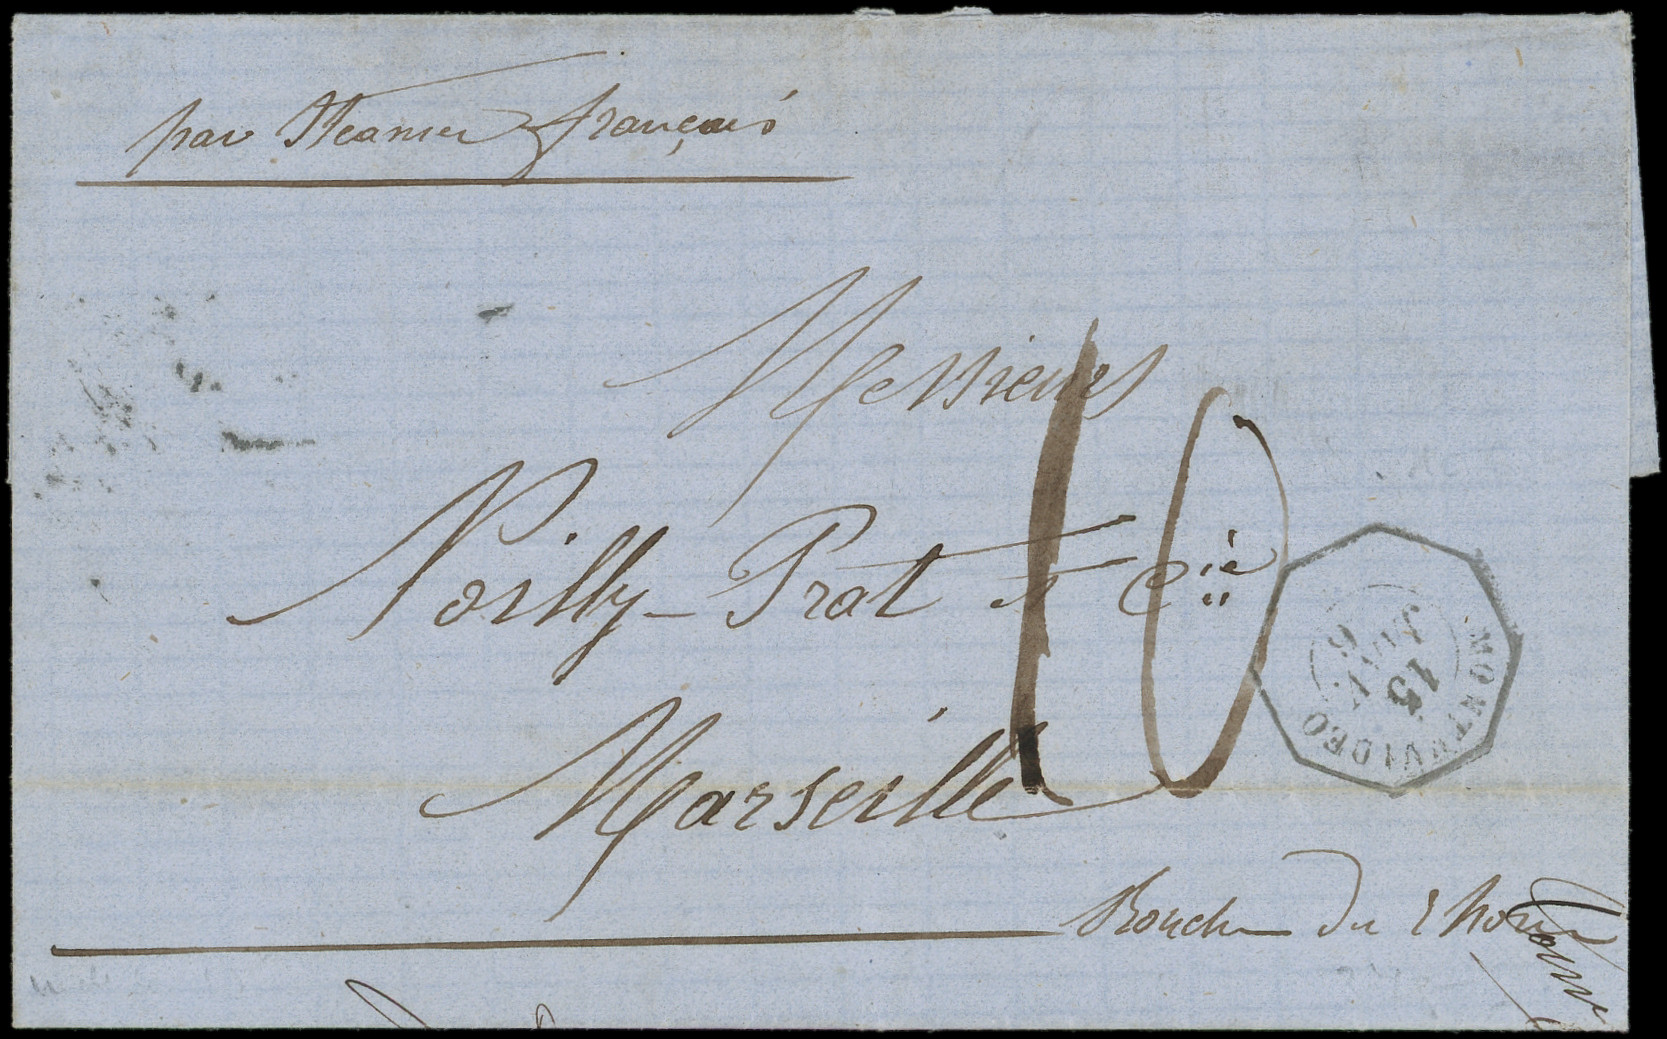 par Steamer français
Messieurs
Noilly-Prat & Cie
10
Marseille
Bouches du Rhône
MONTEVIDEO
15
JANV.